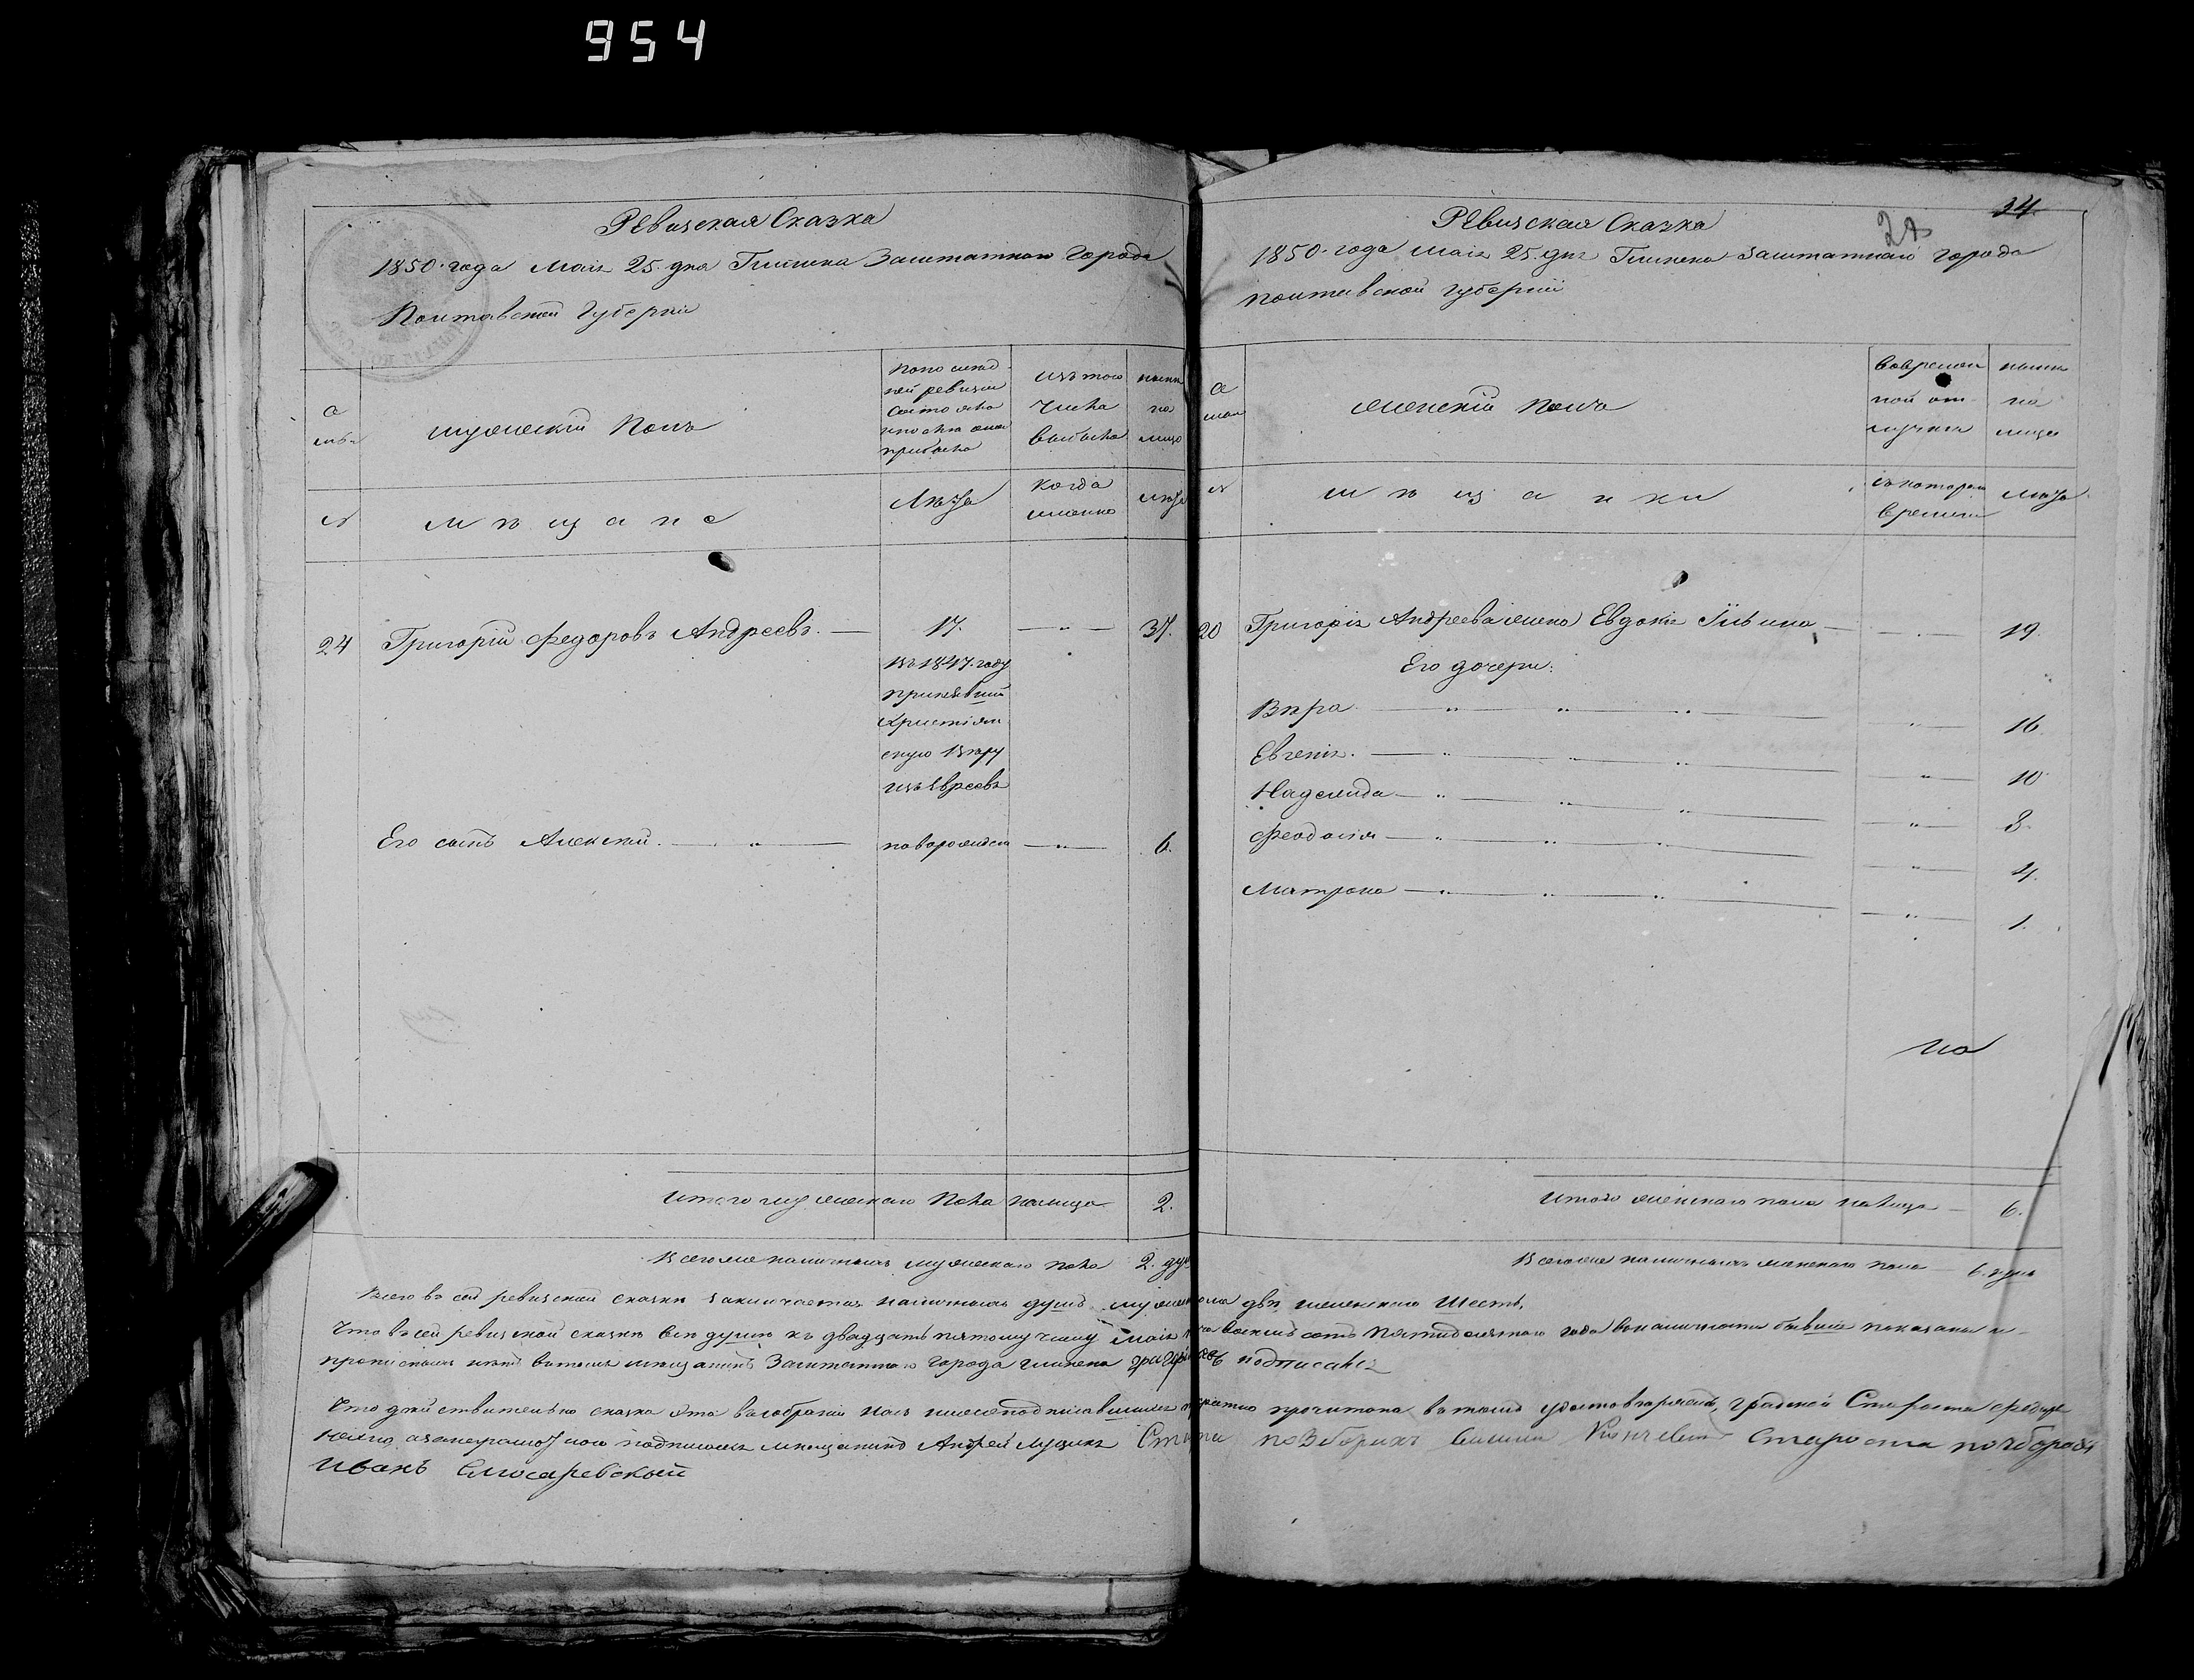 954
Ревизская Сказка
1850. года Маія 25. дня Глинска Заштатного Города
Полтавской Губерніи
мужескій Полъ
по послѣд-
ней ревизіи
состояло
и послѣ оной
прибыло
изъ того
числа
выбыло
нынѣ
на
лицо
№
мѣщане
Лѣта
когда
именно
Лѣта
24 Григорій Федоровъ Андреевъ. — 17. — „ — 37.
въ 1847. году
принявшій
Христіян-
скую Вѣру
изъ Евреевъ
Его сынъ Алексѣй. — „ — новорожден — „ — 6.
Итого мужескаго Пола налицо 2.
Всего же наличныхъ мужескаго пола 2. ду
Ревизская Сказка
24.
1850. года маія 25. дня Глинска Заштатнаго города
Полтавской Губерніи
женскій Полъ
во времен
ной от-
лучкѣ
нынѣ
на
лицо
№
мѣщанки
съ котораго
времени
Лѣта
20 Григорія Андреева жена Евдокія Ильина — „ — 19.
Его дочери:
Вѣра — „ „ „ — „ — 16
Евгенія. — „ „ „ — „ — 10
Надежда — „ „ „ — „ — 8.
Феодосія — „ „ „ — „ — 4.
Матрона — „ „ „ — „ — 1.
Итого женскаго пола налицо — 6.
Всего же наличныхъ женскаго пола — 6. душъ
Всего въ сей ревизской сказкѣ заключается наличныхъ душъ мужеск пола двѣ женскаго Шесть.
Что въ сей ревизской сказкѣ всѣ души къ двадцать пятому числу Маія восемь сотъ пятидесятаго года въ наличности бывшіе показаны и
прописныхъ нѣтъ въ томъ мѣщанинъ Заштатнаго города Глинска подписался
Что дѣйствительно сказка эта въ собраніи насъ нижеподписавшихся прочитана въ томъ удостовѣряемъ, градскій Староста
подписался мѣщанинъ Андрей Староста по выборам
Иванъ Слюсаревскый